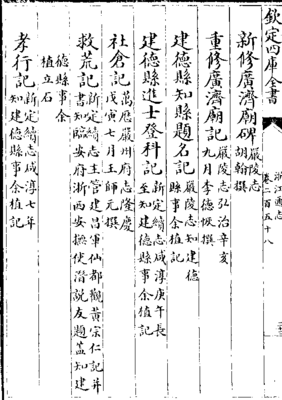 欽定四庫全書
浙江通志
卷二百五十八
新修廣濟廟碑
嚴陵志
胡翰撰
重修廣濟廟記
嚴陵志弘治辛亥
九月李德恢撰
建德縣知縣題名記
嚴陵志知建德
縣事余植記
建德縣進士登科記
新定續志咸淳庚午長
至知建德縣事余植記
社倉記
萬厯嚴州府志隆慶
戊寅七月王師元撰
救荒記
新定續志主管建昌軍仙都觀黃宗仁記并
書知臨安府浙西安撫使潛說友題葢知建
德縣事余
植立石
孝行記
新定續志咸淳七年
知建德縣事余植記